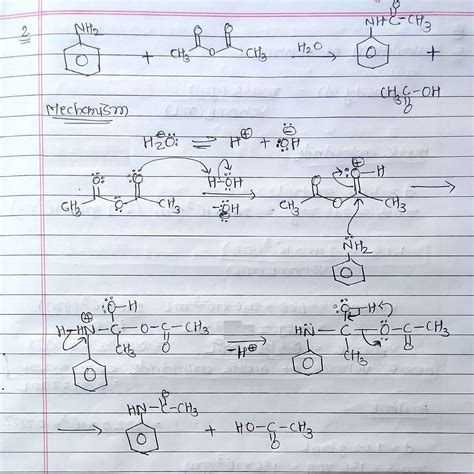 2 NH2 + CH3 O O O CH3 H2O NH-C-CH3 O +
CH3-C-OH O
Mechanism
H2O: ⇌ H⊕ + :OH⊖
CH3 O O O CH3 H-OH -:OH⊖ CH3 O O O-H CH3
NH2
H-HN⊕-C-O-C-CH3 O-H CH3 O -H⊕ HN-C-O-C-CH3 O-H CH3 O
HN-C-CH3 O + HO-C-CH3 O